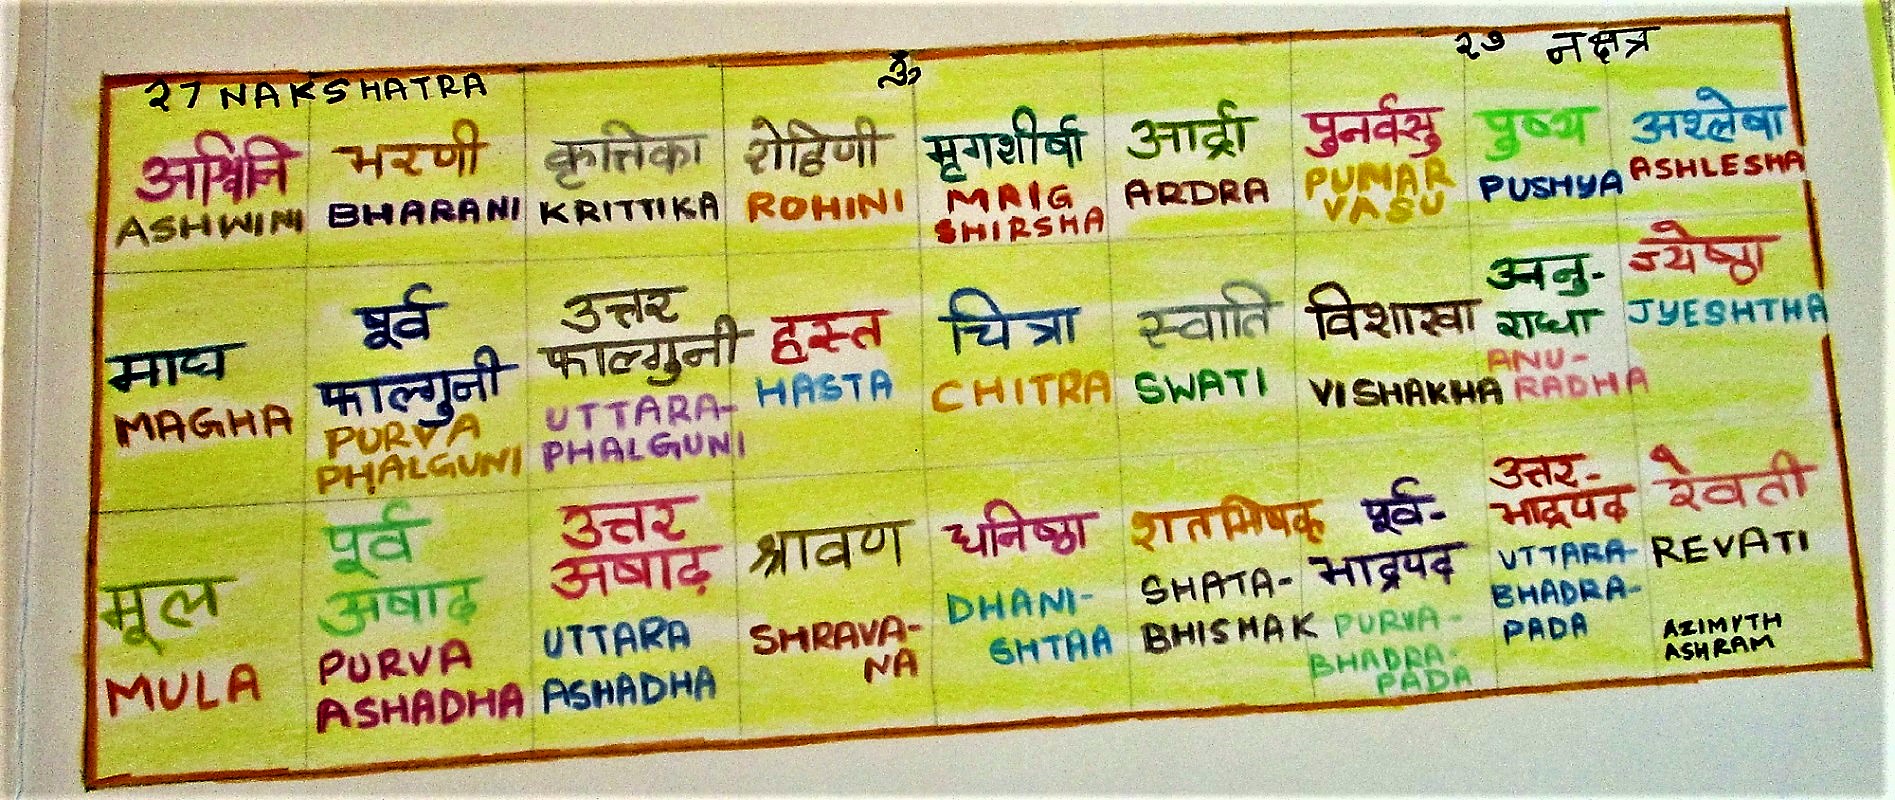 27 NAKSHATRA
ॐ
२७ नक्षत्र
अश्विनि
ASHWINI
भरणी
BHARANI
कृत्तिका
KRITTIKA
रोहिणी
ROHINI
मृगशीर्षा
MRIG
SHIRSHA
आर्द्रा
ARDRA
पुनर्वसु
PUMAR
VASU
पुष्य
PUSHYA
अश्लेषा
ASHLESHA
माघ
MAGHA
पूर्व
फाल्गुनी
PURVA
PHALGUNI
उत्तर
फाल्गुनी
UTTARA-
PHALGUNI
हस्त
HASTA
चित्रा
CHITRA
स्वाति
SWATI
विशाखा
VISHAKHA
अनु-
राधा
ANU-
RADHA
ज्येष्ठा
JYESHTHA
मूल
MULA
पूर्व
अषाढ
PURVA
ASHADHA
उत्तर
अषाढ़
UTTARA
ASHADHA
श्रावण
SHRAVA-
NA
धनिष्ठा
DHANI-
SHTAA
शतभिषक्
SHATA-
BHISHAK
पूर्व-
भाद्रपद
PURVA-
BHADRA-
PADA
उत्तर-
भाद्रपद
UTTARA-
BHADRA-
PADA
रेवती
REVATI
AZIMYTH
ASHRAM